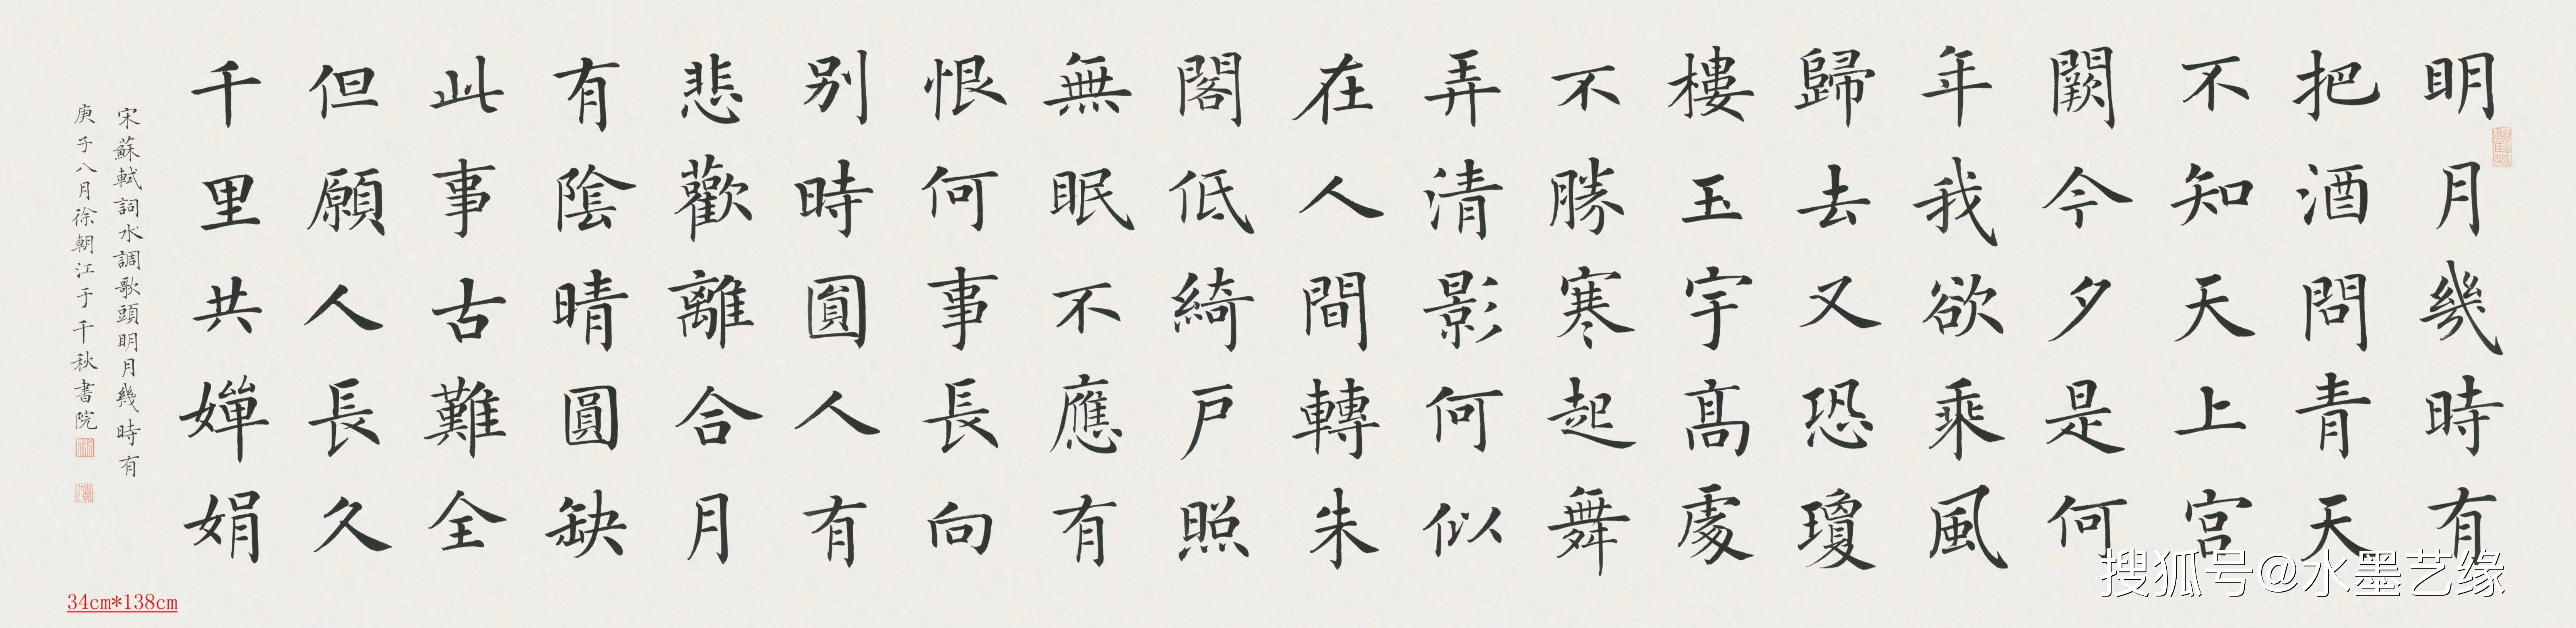 明月幾時有
把酒問青天
不知天上宮
闕今夕是何
年我欲乘風
歸去又恐瓊
樓玉宇高處
不勝寒起舞
弄清影何似
在人間轉朱
閣低綺戶照
無眠不應有
恨何事長向
别時圓人有
悲歡離合月
有陰晴圓缺
此事古難全
但願人長久
千里共嬋娟
宋蘇軾詞水調歌頭明月幾時有
庚子八月徐朝江于千秋書院
34cm*138cm
搜狐号@水墨艺缘